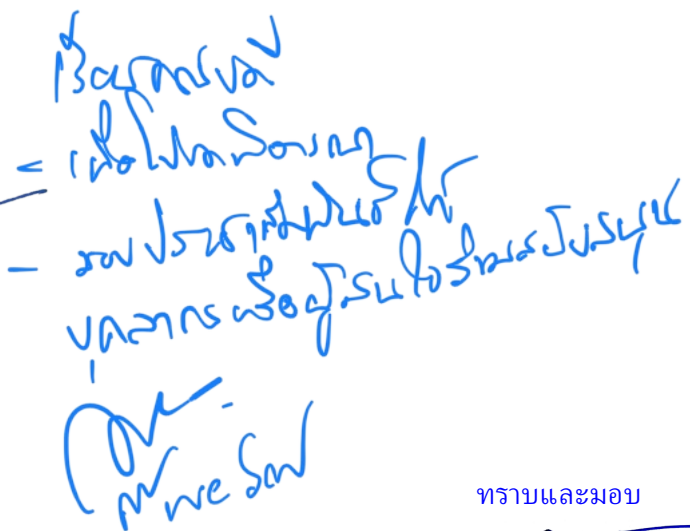 เรียน คณบดี
- เพื่อโปรดพิจารณา
- ประชาสัมพันธ์ให้
บุคลากรหรือผู้สนใจร่วมสนับสนุน
ทราบและมอบ